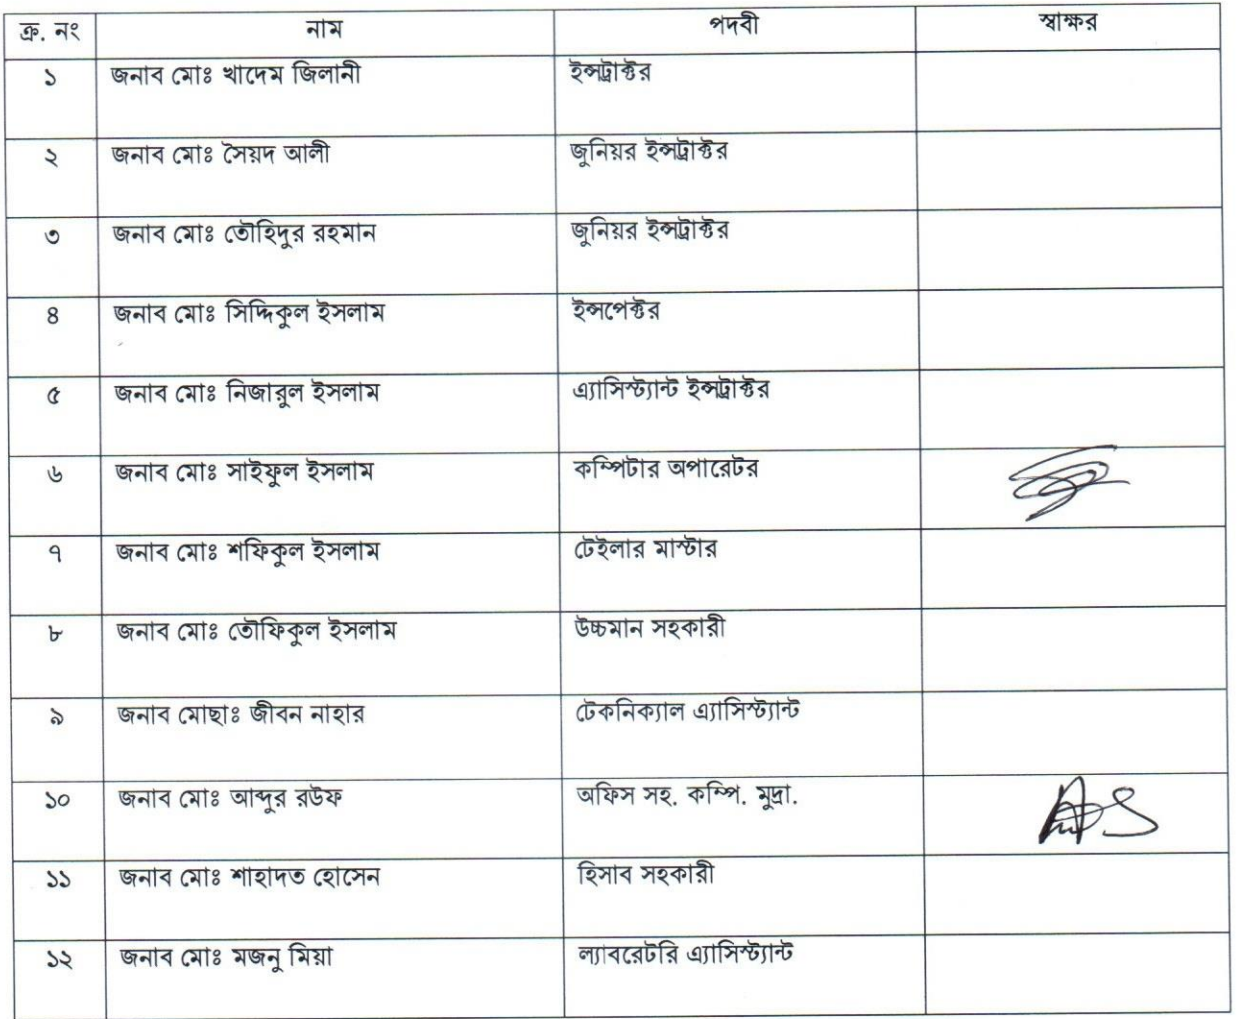 ক্র. নং নাম পদবী স্বাক্ষর
১ জনাব মোঃ খাদেম জিলানী ইন্সট্রাক্টর
২ জনাব মোঃ সৈয়দ আলী জুনিয়র ইন্সট্রাক্টর
৩ জনাব মোঃ তৌহিদুর রহমান জুনিয়র ইন্সট্রাক্টর
৪ জনাব মোঃ সিদ্দিকুল ইসলাম ইন্সপেক্টর
৫ জনাব মোঃ নিজারুল ইসলাম এ্যাসিস্ট্যান্ট ইন্সট্রাক্টর
৬ জনাব মোঃ সাইফুল ইসলাম কম্পিটার অপারেটর
৭ জনাব মোঃ শফিকুল ইসলাম টেইলার মাস্টার
৮ জনাব মোঃ তৌফিকুল ইসলাম উচ্চমান সহকারী
৯ জনাব মোছাঃ জীবন নাহার টেকনিক্যাল এ্যাসিস্ট্যান্ট
১০ জনাব মোঃ আব্দুর রউফ অফিস সহ. কম্পি. মুদ্রা.
১১ জনাব মোঃ শাহাদত হোসেন হিসাব সহকারী
১২ জনাব মোঃ মজনু মিয়া ল্যাবরেটরি এ্যাসিস্ট্যান্ট